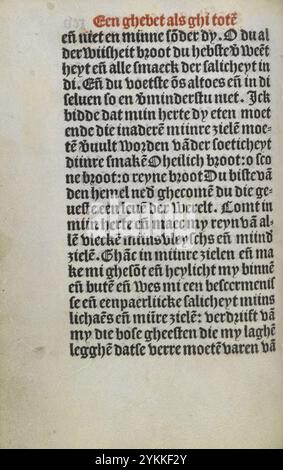 Een ghebet als ghi totē
eñ niet en minne sōder dy. O du al
der wiisheit broot du hebste ꝟ weēt
heyt eñ alle smaeck der salicheyt in
di. Eñ du voetste ōs altoes eñ in di
seluen so en ꝟminderstu niet. Ick
bidde dat miin herte dy eten moet
ende die inaderē miinre zielē moe-
tē ꝟuult worden vā der soeticheyt
diinre smakē O heilich broot: o sco
ne broot: o reyne broot Du biste vā
den hemel ned ghecomē du die ge-
ueste een leuē der werelt. Comt in
miin herte eñ maect my reyn vā al-
lē vleckē miins vleyschs eñ miind
zielē. Ghāc in miinre zielen eñ ma
ke mi ghesōt eñ heylicht my binnē
eñ butē eñ wes mi een beschermenis
se eñ eenpaerliicke salicheyt miins
lichaēs eñ miīre zielē: verdriift vā
my die bose gheesten die my laghē
legghē datse verre moetē varen vā
alamy
Image ID: 2YKKF2Y
www.alamy.com